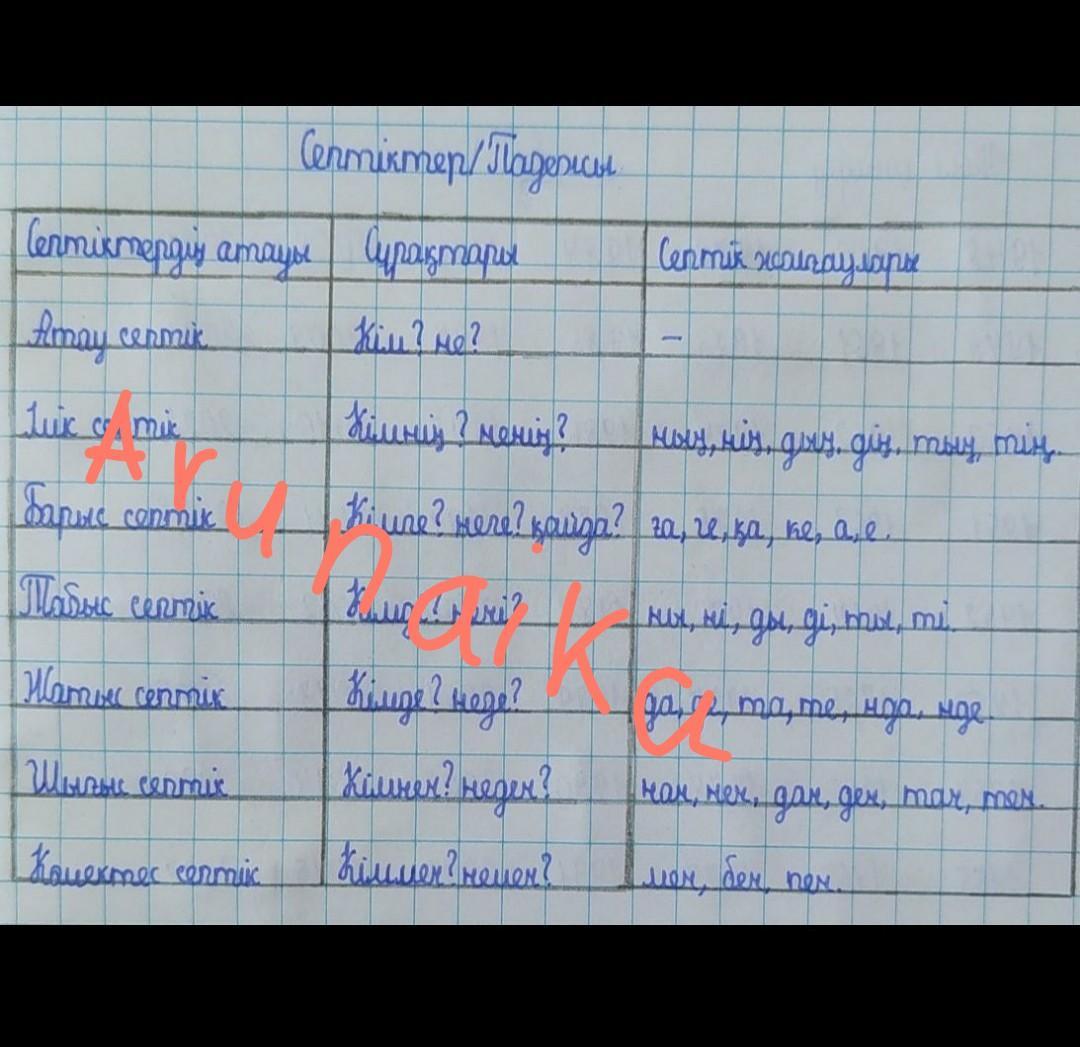 Септіктер/Падежы
Септіктердің атауы Сұрақтары Септік жалғаулары
Атау септік Кім? не? –
Ілік септік Кімнің? ненің? ның, нің, дың, дің, тың, тің.
Барыс септік Кімге? неге? қайда? ға, ге, қа, ке, а, е.
Табыс септік Кімді? нені? ны, ні, ды, ді, ты, ті.
Жатыс септік Кімде? неде? да, де, та, те, нда, нде
Шығыс септік Кімнен? неден? нан, нен, дан, ден, тан, тен.
Көмектес септік Кіммен? немен? мен, бен, пен.
Arunaika